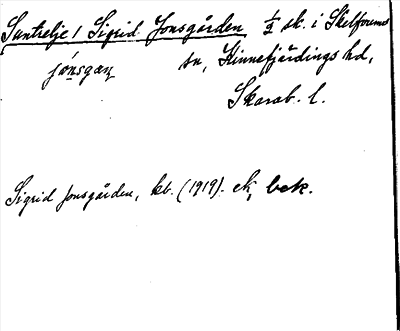 Suntrelje / Sigrid Jonsgården 1/2 sk. i Skelfvums
jónsgaɳ sn, Kinnefjärdings hd,
Skarab. l.
Sigrid Jonsgården, kb. (1919). ek, bek.